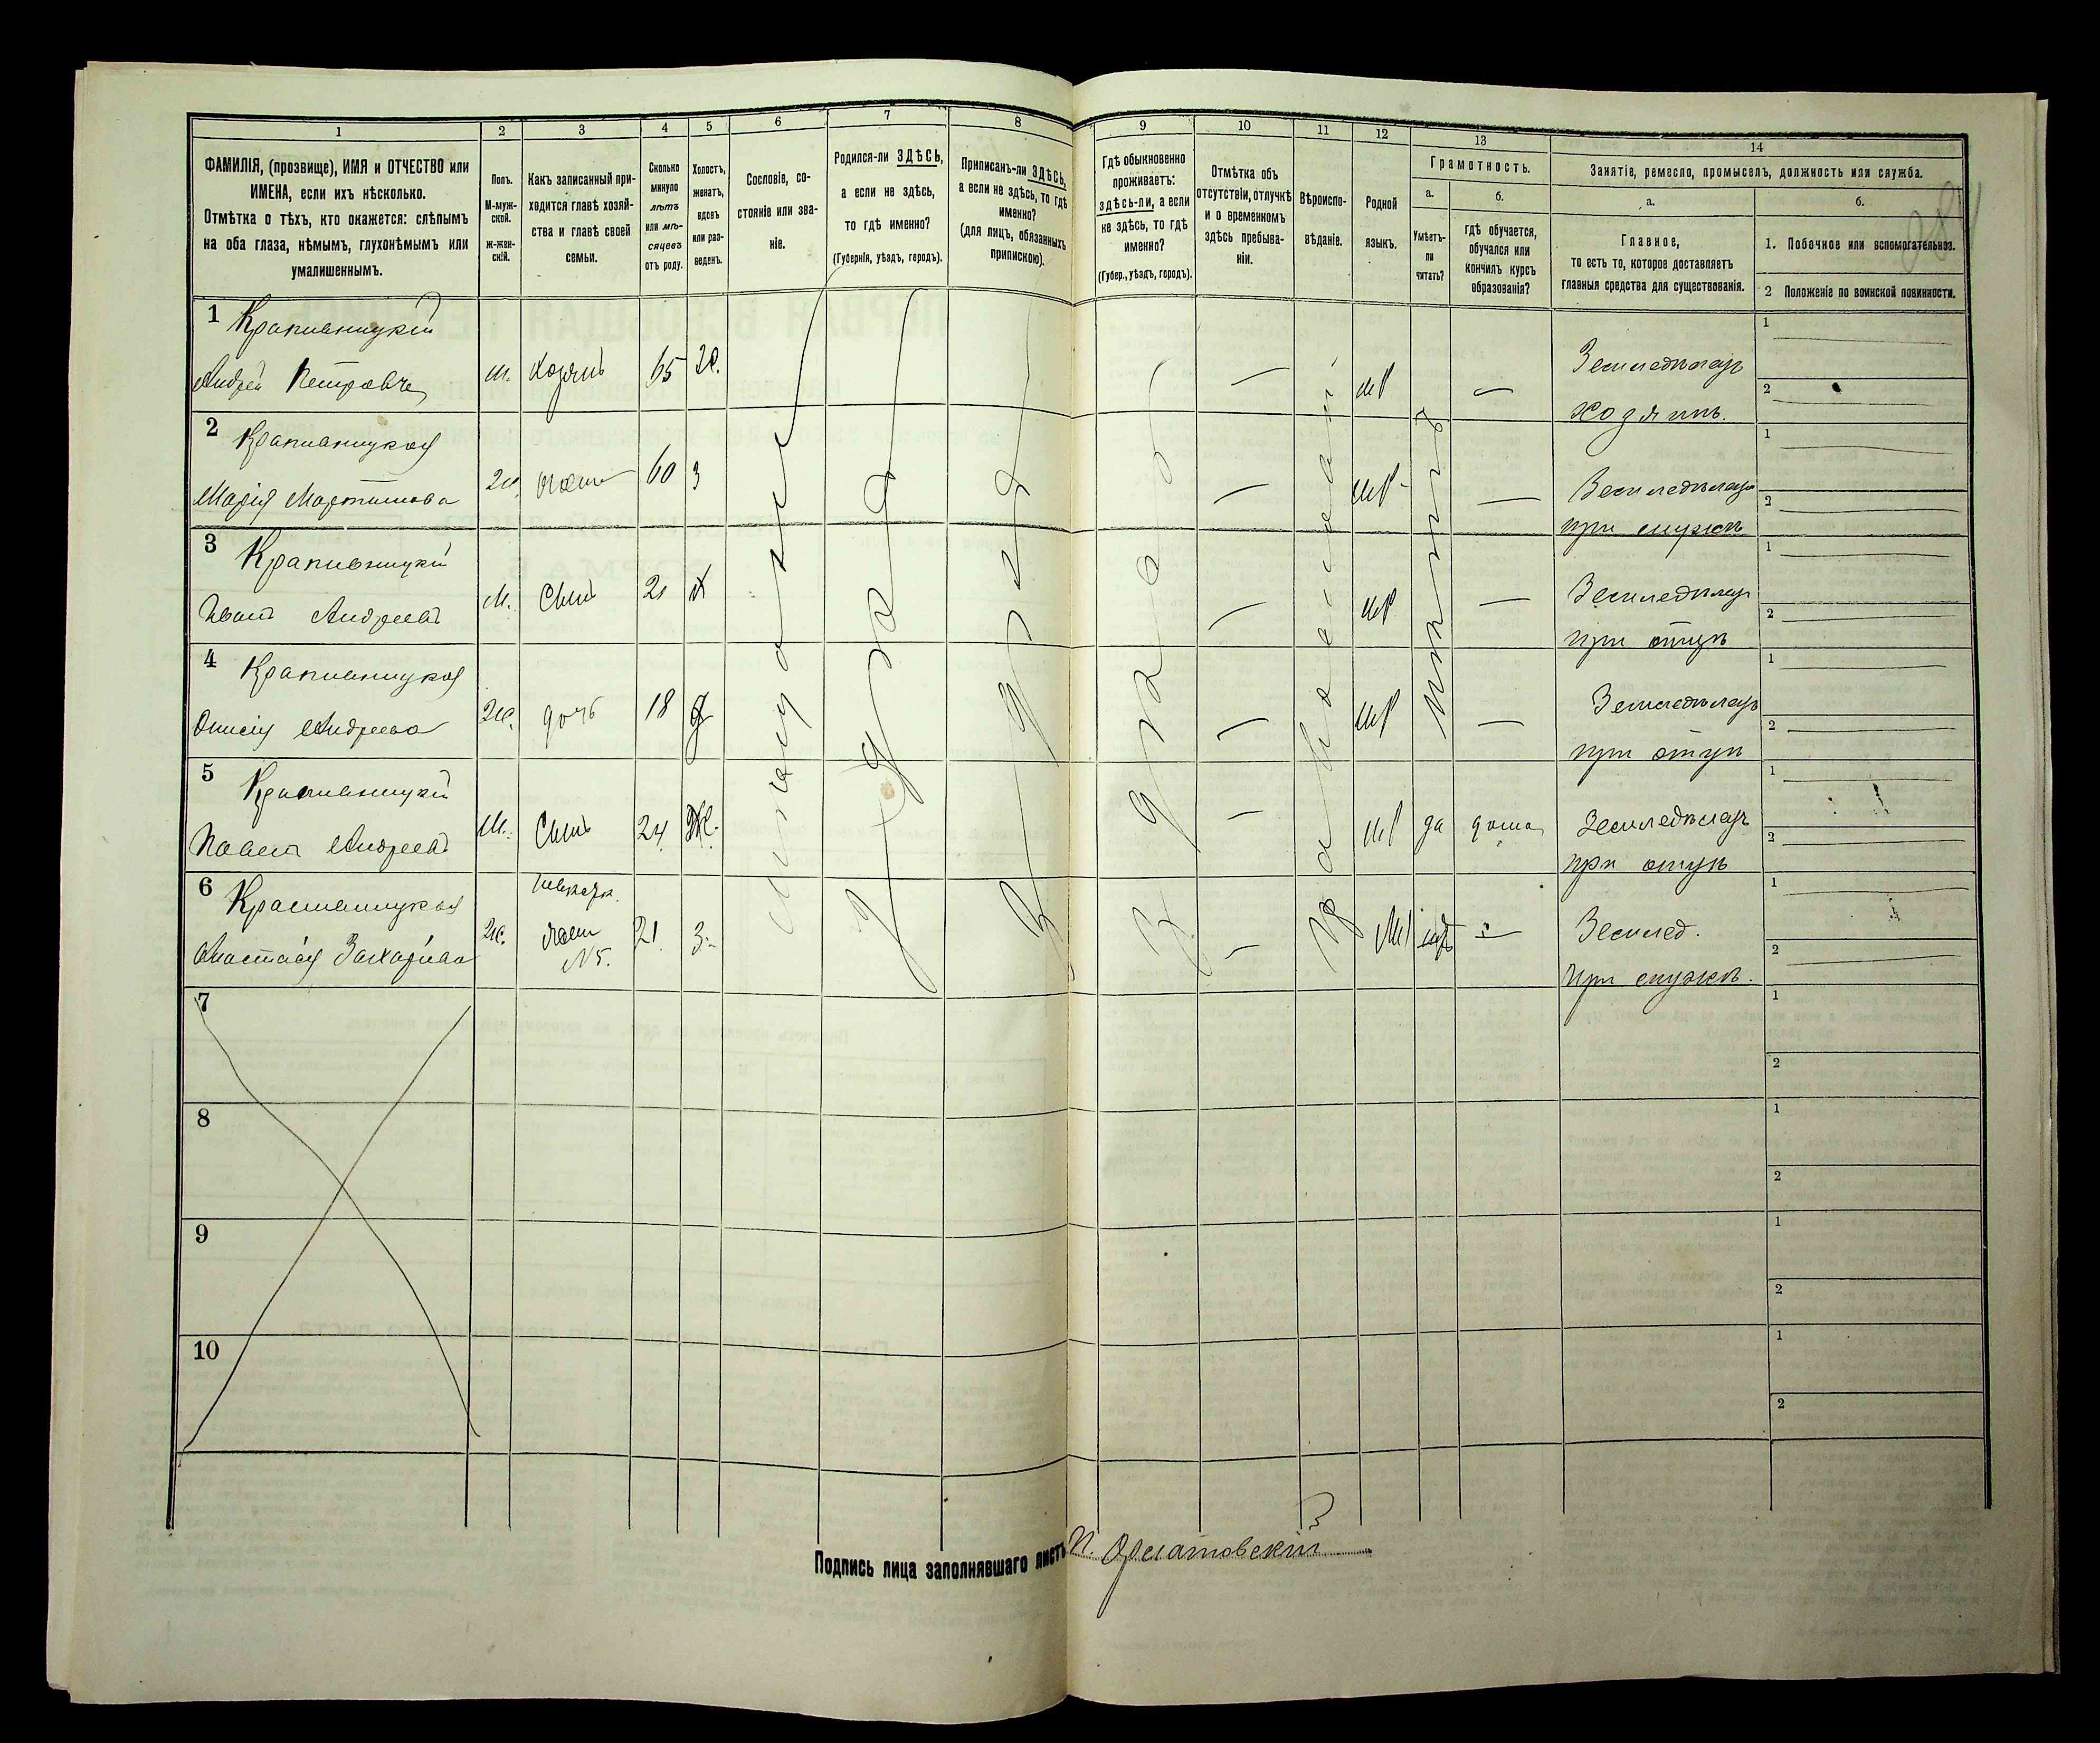 1 2 3 4 5 6 7 8 9 10 11 12 13 14
ФАМИЛІЯ, (прозвище), ИМЯ и ОТЧЕСТВО или
ИМЕНА, если ихъ нѣсколько.
Отмѣтка о тѣхъ, кто окажется: слѣпымъ
на оба глаза, нѣмымъ, глухонѣмымъ или
умалишеннымъ.
Полъ.
М-муж-
ской.
ж-жен-
скій.
Какъ записанный при-
ходится главѣ хозяй-
ства и главѣ своей
семьи.
Сколько
минуло
лѣтъ
или мѣ-
сяцевъ
отъ роду.
Холостъ,
женатъ,
вдовъ
или раз-
веденъ.
Сословіе, со-
стояніе или зва-
ніе.
Родился-ли ЗДѢСЬ,
а если не здѣсь,
то гдѣ именно?
(Губернія, уѣздъ, городъ).
Приписанъ-ли ЗДѢСЬ,
а если не здѣсь, то гдѣ
именно?
(для лицъ, обязанныхъ
припискою).
Гдѣ обыкновенно
проживаетъ:
здѣсь-ли, а если
не здѣсь, то гдѣ
именно?
(Губер., уѣздъ, городъ).
Отмѣтка объ
отсутствіи, отлучкѣ
и о временномъ
здѣсь пребыва-
ніи.
Вѣроиспо-
вѣданіе.
Родной
языкъ.
Грамотность.
а.
Умѣетъ-
ли
читать?
б.
гдѣ обучается,
обучался или
кончилъ курсъ
образованія?
Занятіе, ремесло, промыселъ, должность или служба.
а.
Главное,
то есть то, которое доставляетъ
главныя средства для существованія.
б.
1. Побочное или вспомогательное.
2 Положеніе по воинской повинности.
1 Крапивницкій
Андрей Петровъ м. хозяинъ 65 ж. Земледѣлецъ
хозяинъ.
2 Крапивницкая
Марія Мартинова ж. жена 60 з Земледѣлецъ
при мужѣ
3 Крапивницкій
Иванъ Андреевъ м. Сынъ 21 х Земледѣлецъ
при отцѣ
4 Крапивницкая
Андреева ж. дочь 18 д Земледѣлецъ
при отцѣ
5 Крапивницкій
Павелъ Андреевъ м. Сынъ 24 Ж. да дома Земледѣлецъ
при отцѣ
6 Крапивницкая невѣстк.
Анастасія Захаріева ж. жена 21 з. нѣтъ Землед.
№5. при мужѣ.
Здѣсь
Православный
7
8
9
10
1
2
1
2
1
2
1
2
1
2
1
2
1
2
1
2
1
2
1
2
Подпись лица заполнявшаго листъ